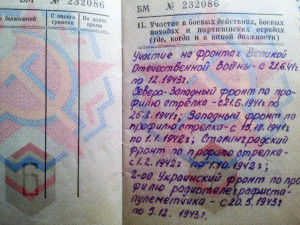 БМ № 232086
БМ № 232086
11. Участие в боевых действиях, боевых
походах и партизанских отрядах
(где, когда и в какой должности)
Участие на фронтах Великой
Отечественной Войны - с 21.6.41г
по 12.1943г.
Северо-Западный фронт по про-
филю стрелка - с 21.6.1941г по
25.8.1941г; Западный фронт по
профилю стрелка - с 15.10.1941г
по 1.1.1942г; Сталинградский
фронт по профилю стрелка -
с 1.2.1942г по 1.10.1942г;
2-ой Украинский фронт по про-
филю радиотелеграфиста-
пулеметчика - с 20.5.1943г
по 5.12.1943г.